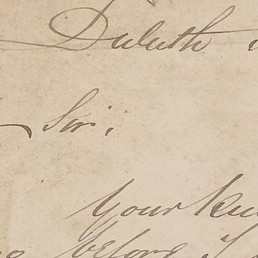 Duluth
Sir;
Your
before I